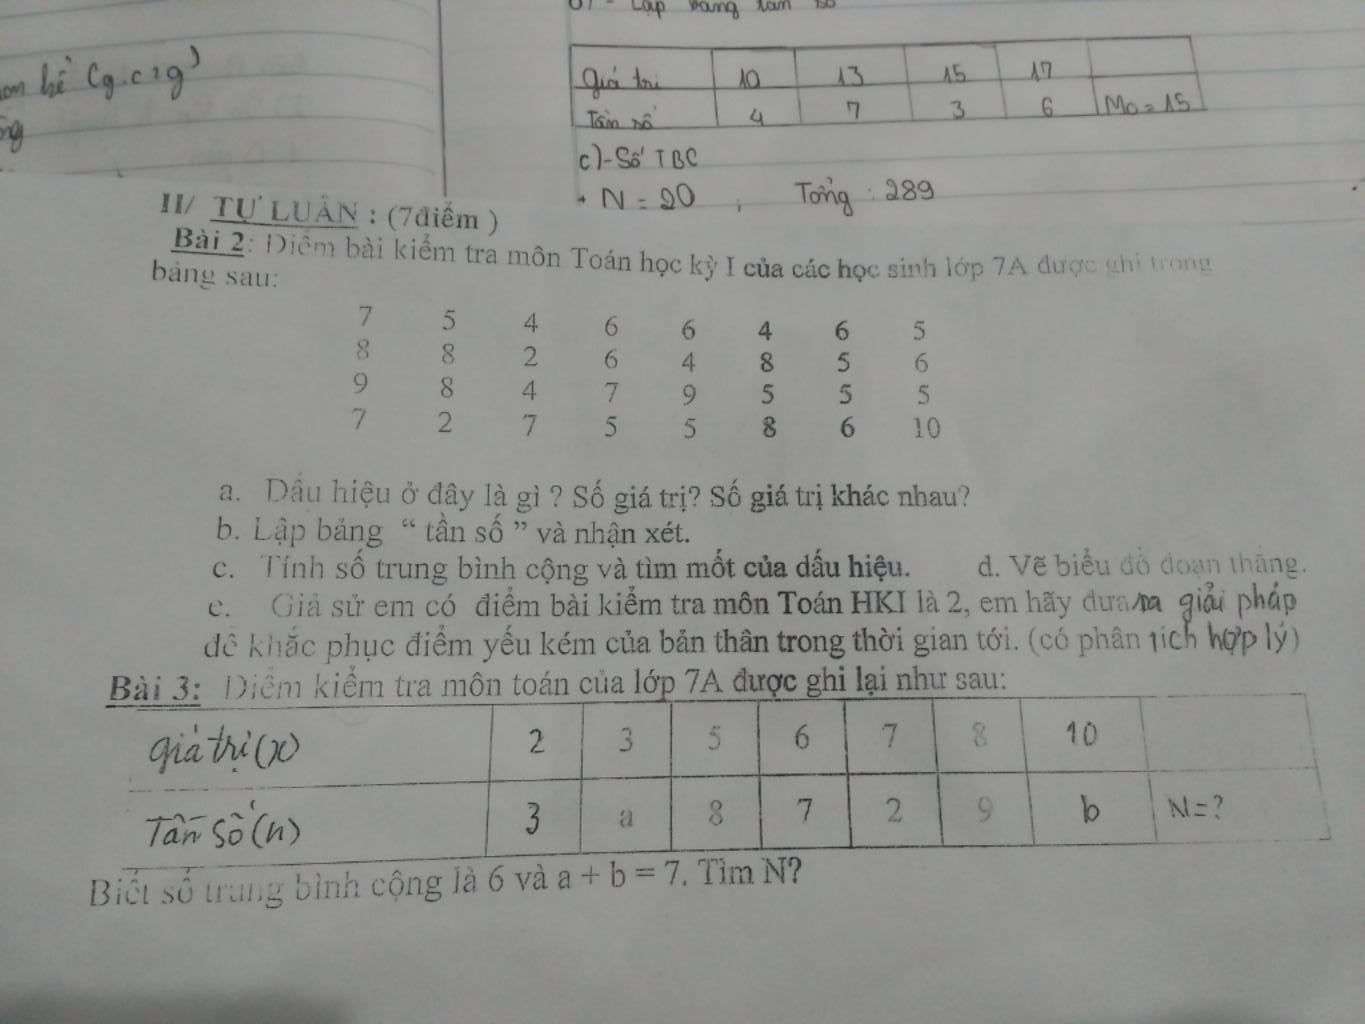 b) - Lập bảng tần số
hê (g.c.g)
Giá trị 10 13 15 17
Tần số 4 7 3 6 M₀ = 15
c) - Số TBC
N = 20 , Tổng : 289
II/ TỰ LUẬN : (7điểm )
Bài 2: Điểm bài kiểm tra môn Toán học kỳ I của các học sinh lớp 7A được ghi trong
bảng sau:
7 5 4 6 6 4 6 5
8 8 2 6 4 8 5 6
9 8 4 7 9 5 5 5
7 2 7 5 5 8 6 10
a. Dấu hiệu ở đây là gì ? Số giá trị? Số giá trị khác nhau?
b. Lập bảng “ tần số ” và nhận xét.
c. Tính số trung bình cộng và tìm mốt của dấu hiệu. d. Vẽ biểu đồ đoạn thẳng.
e. Giả sử em có điểm bài kiểm tra môn Toán HKI là 2, em hãy đưa ra giải pháp
để khắc phục điểm yếu kém của bản thân trong thời gian tới. (có phân tích hợp lý)
Bài 3: Điểm kiểm tra môn toán của lớp 7A được ghi lại như sau:
giá trị (x) 2 3 5 6 7 8 10
Tần số (n) 3 a 8 7 2 9 b N=?
Biết số trung bình cộng là 6 và a + b = 7. Tìm N?